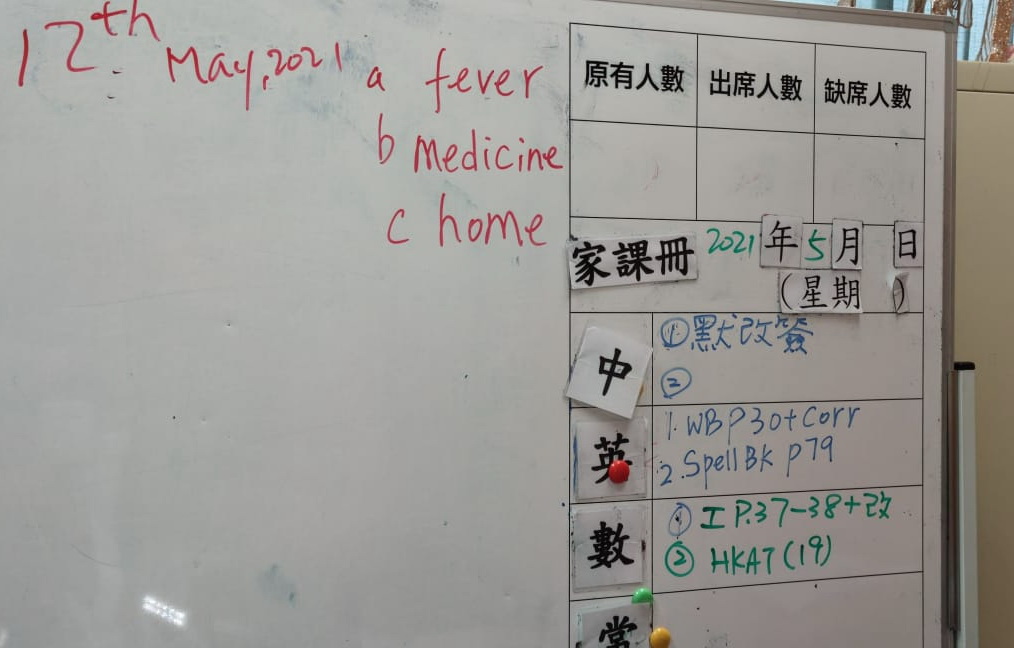 12th May, 2021
a fever
b medicine
c home
原有人數 出席人數 缺席人數
家課冊 2021年5月 日
(星期 )
中 ①默改簽
②
英 1. WB P30+Corr
2. Spell BK P79
數 ① 工 P.37-38+改
② HKAT(19)
常